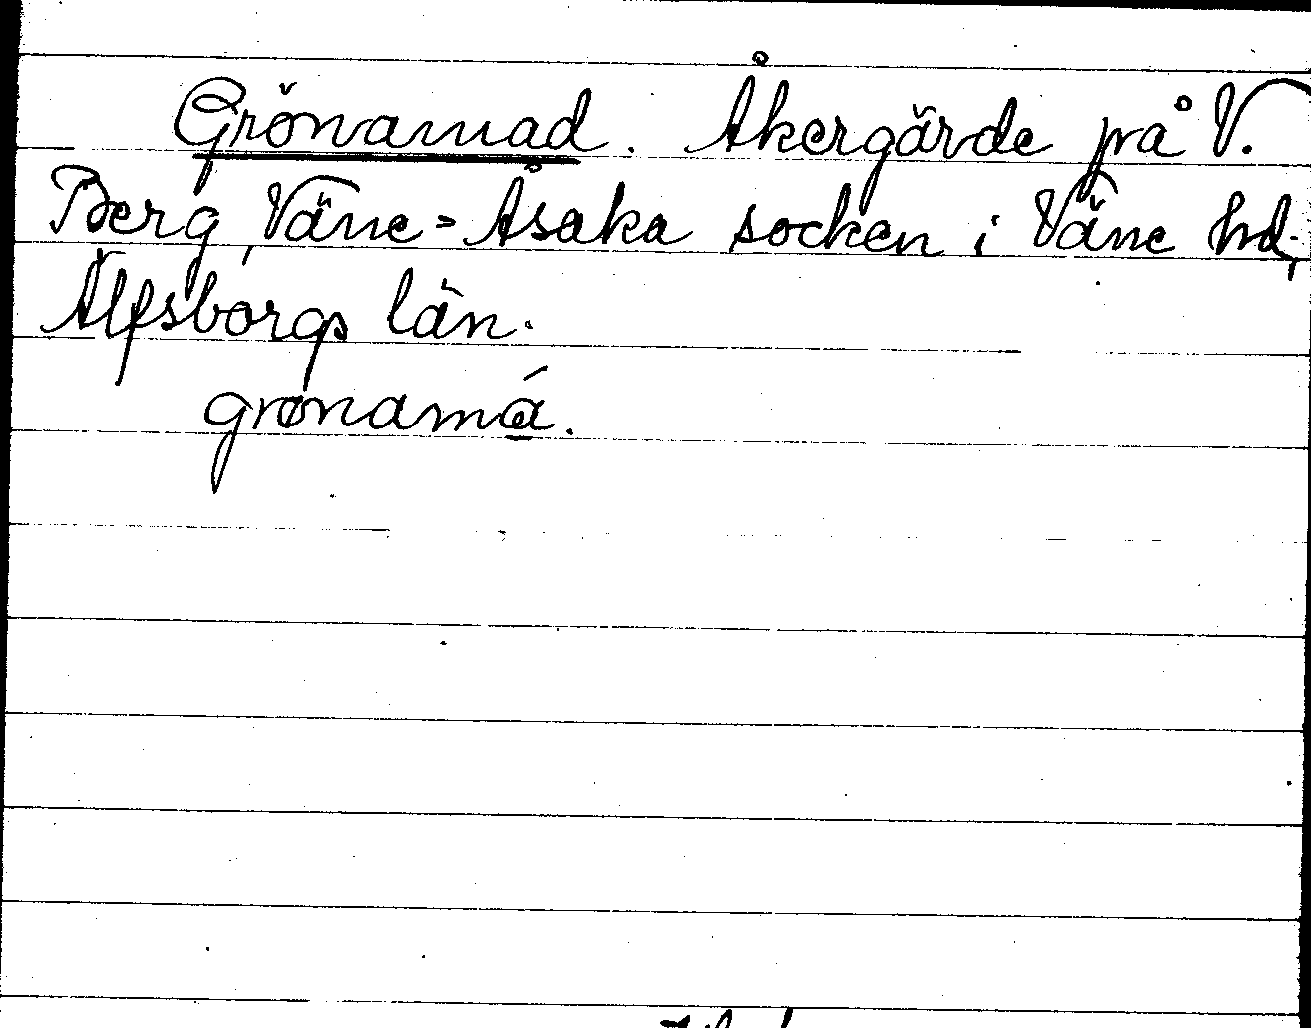 Grönamad. Åkergärde på V.
Berg, Väne-Åsaka socken i Väne hd.,
Älfsborgs län.
grønamá̲.